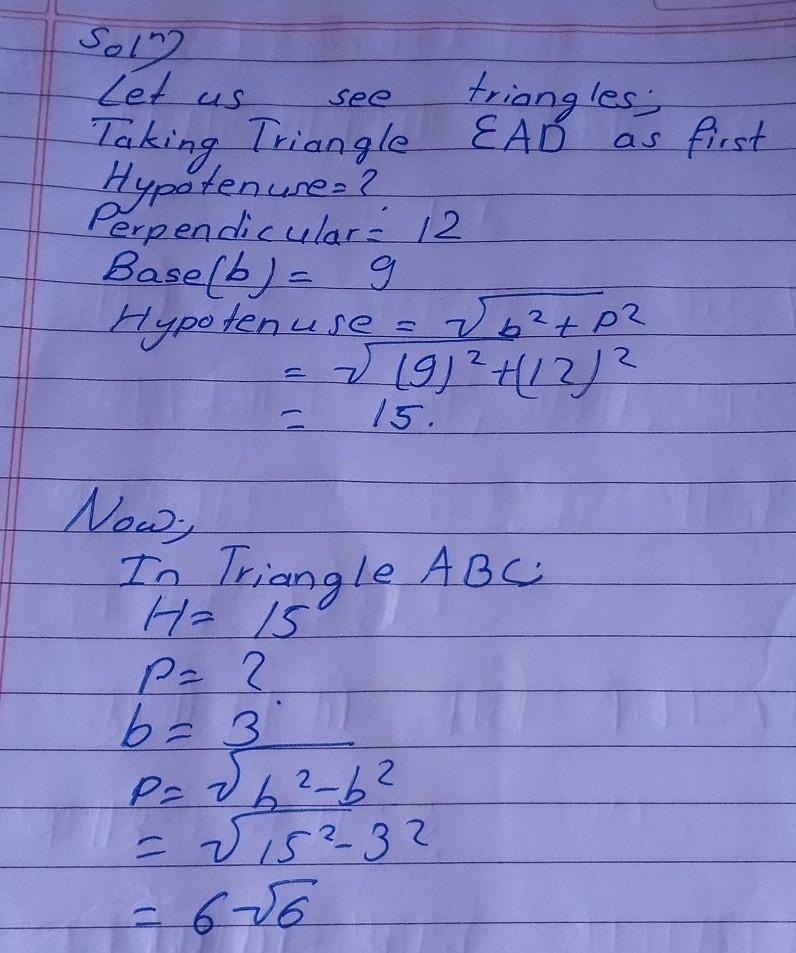 Solⁿ
Let us see triangles;
Taking Triangle EAD as first
Hypotenuse=?
Perpendicular= 12
Base(b) = 9
Hypotenuse = √b²+p²
= √(9)²+(12)²
= 15.
Now;,
In Triangle ABC;
H= 15
P= ?
b= 3
P= √h²-b²
= √15²-3²
= 6√6